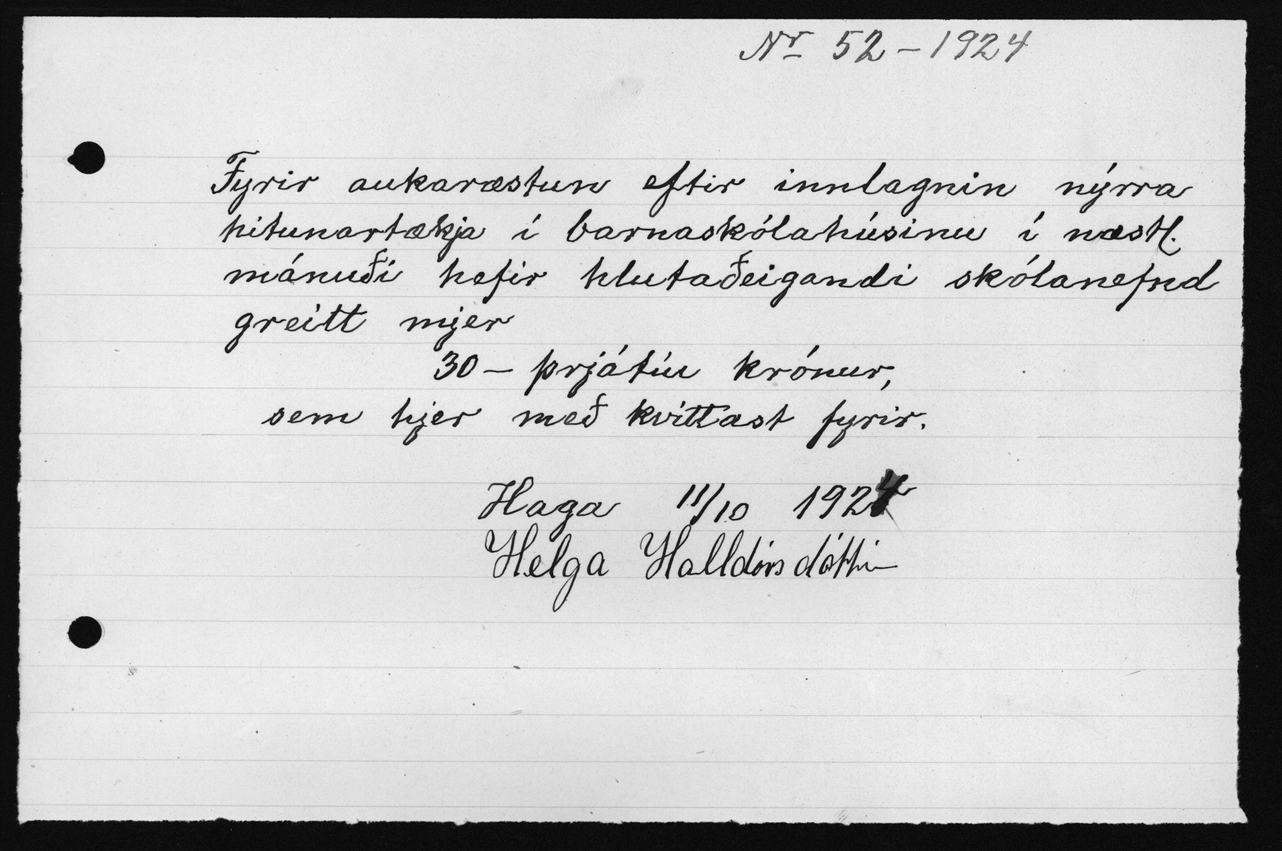 Nr 52 - 1924
Fyrir aukaræstun eftir innlagnin nýrra
hitunartækja í barnaskólahúsinu í næstl.
mánuði hefir hlutaðeigandi skólanefnd
greitt mjer
30 - þrjátíu krónur,
sem hjer með kvittast fyrir.
Haga 11/10 1924
Helga Halldórsdóttir